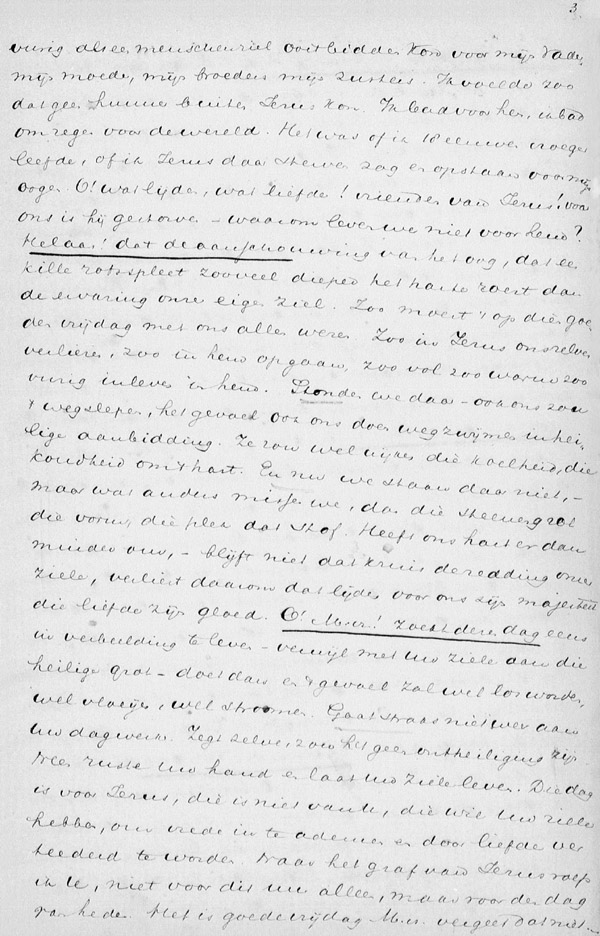 3.
vurig als een menschenziel ooit bidden kon voor mijn Vader,
mijn moeder, mijn broeders mijn zusters. Ik voelde zoo
dat geen hunner buiten Jezus kon. Ik bad voor hen, ik bad
om zegen voor de wereld. Het was of ik 18 eeuwen vroeger
leefde, of ik Jezus daar sterven zag en opstaan voor mijn
oogen. O! wat lijden, wat liefde! vrienden van Jezus! voor
ons is hij gestorven – waarom leven we niet voor hem?
Helaas! dat de aanschouwing van het oog, dat een
kille rotsspleet zooveel dieper het harte roert dan
de ervaring onzer eigen ziel. Zoo moest 't op dien goe
den vrijdag met ons allen wezen. Zoo in Jezus ons zelven
verliezen, zoo in hem opgaan, zoo vol zoo warm zoo
vurig inleven in hem. Stonden we daar – ook ons zou
't wegslepen, het gevoel ook ons doen wegzwijmen in hei
lige aanbidding. Ze zou wel wijken die koelheid, die
koudheid om 't hart. En nu we staan daar niet, –
maar wat anders missen we, dan die steenen grot
die vorm, die plek dat stof. Heeft ons hart er dan
minder aan, – blijft niet dat kruis de redding onzer
ziele, verliest daarom dat lijden voor ons zijn majesteit
die liefde zijn gloed. O! M.n.! zoekt dezen dag eens
in verbeelding te leven – verwijl met uw ziele aan die
heilige grot – doet dan en 't gevoel zal wel los worden,
wel vloeijen, wel stroomen. Gaat straks niet weer aan
uw dagwerk. Zegt zelve, zou het geen ontheiliging zijn
Neen ruste uw hand en laat uw ziele leven. Die dag
is voor Jezus, die is niet van u, die wil uw ziele
hebben, om vrede in te ademen en door liefde ver
teederd te worden. Naar het graf van Jezus roep
ik u, niet voor dit uur alleen, maar voor den dag
van heden. Het is goede vrijdag M.n. vergeet dat niet. –